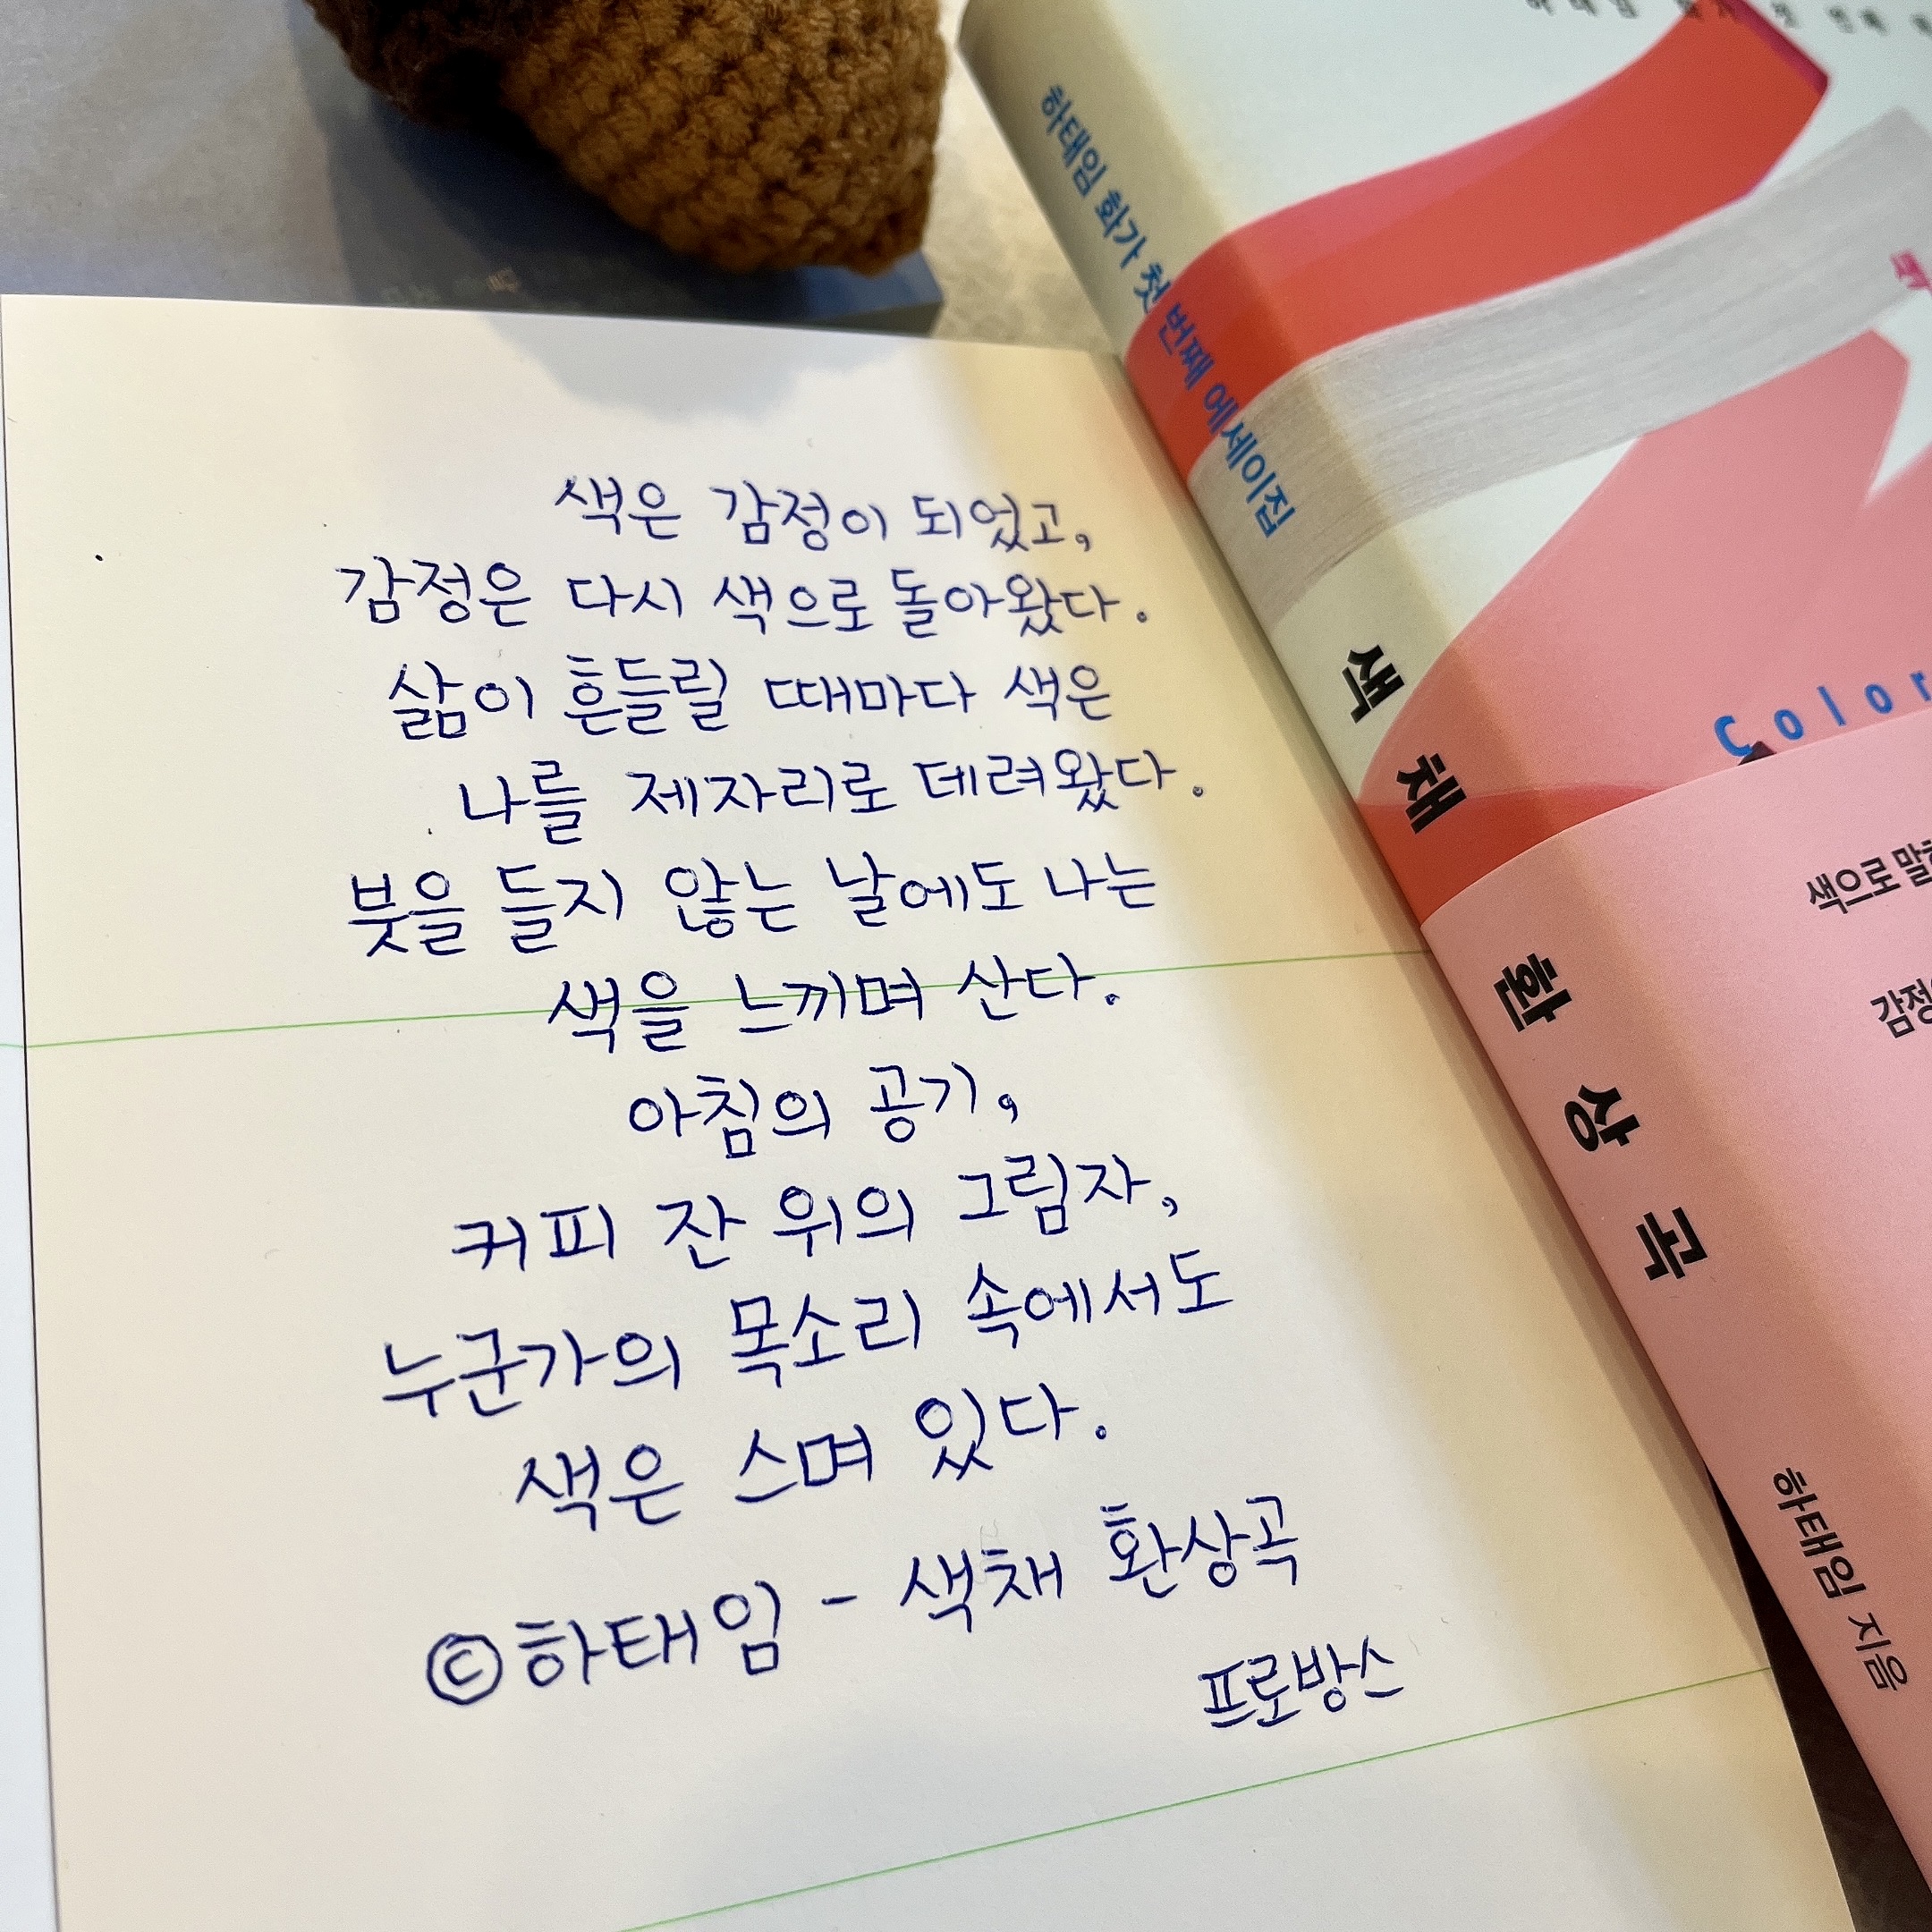 색은 감정이 되었고,
감정은 다시 색으로 돌아왔다.
삶이 흔들릴 때마다 색은
나를 제자리로 데려왔다.
붓을 들지 않는 날에도 나는
색을 느끼며 산다.
아침의 공기,
커피 잔 위의 그림자,
누군가의 목소리 속에서도
색은 스며 있다.
©하태임 - 색채 환상곡
프로방스
하태임 화가 첫 번째 에세이집
색채 환상곡
하태임 지음
Color
색으로